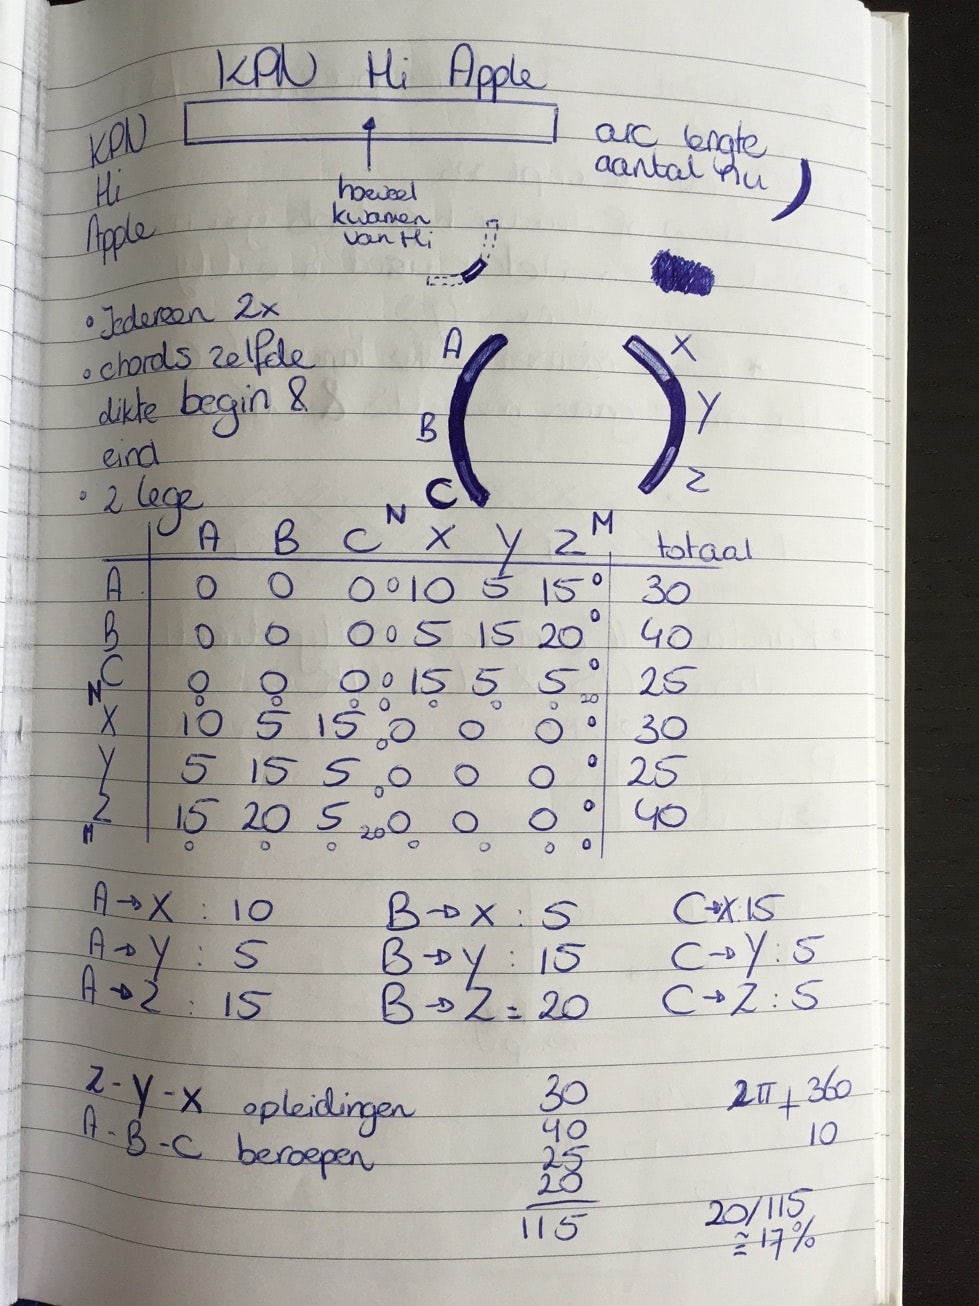 KPN Hi Apple
KPN
Hi
Apple
hoeveel
kwamen
van Hi
arc lengte
aantal nu
• Iedereen 2x
• chords zelfde
dikte begin &
eind
• 2 lege
A
B
C
X
Y
Z
A B C N X Y Z M totaal
A 0 0 0 0 10 5 15 0 30
B 0 0 0 0 5 15 20 0 40
C 0 0 0 0 15 5 5 0 25
N 0 0 0 0 0 0 0 20
X 10 5 15 0 0 0 0 0 30
Y 5 15 5 0 0 0 0 0 25
Z 15 20 5 20 0 0 0 0 40
M 0 0 0 0 0 0 0
A→X : 10 B→X : 5 C→X:15
A→Y : 5 B→Y : 15 C→Y : 5
A→Z : 15 B→Z = 20 C→Z : 5
Z-Y-X opleidingen
A-B-C beroepen
30
40
25
20
115
2π + 360
10
20/115
≅ 17%